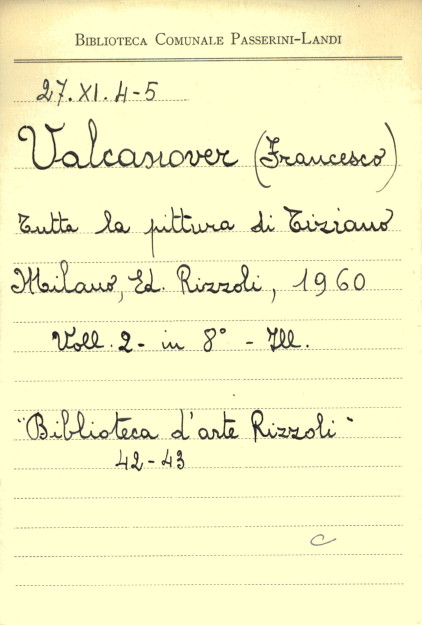 BIBLIOTECA COMUNALE PASSERINI-LANDI
27.XI.4-5
Valcanover (Francesco)
Tutta la pittura di Tiziano
Milano, Ed. Rizzoli, 1960
Voll. 2 - in 8° - Ill.
"Biblioteca d'arte Rizzoli"
42-43
C